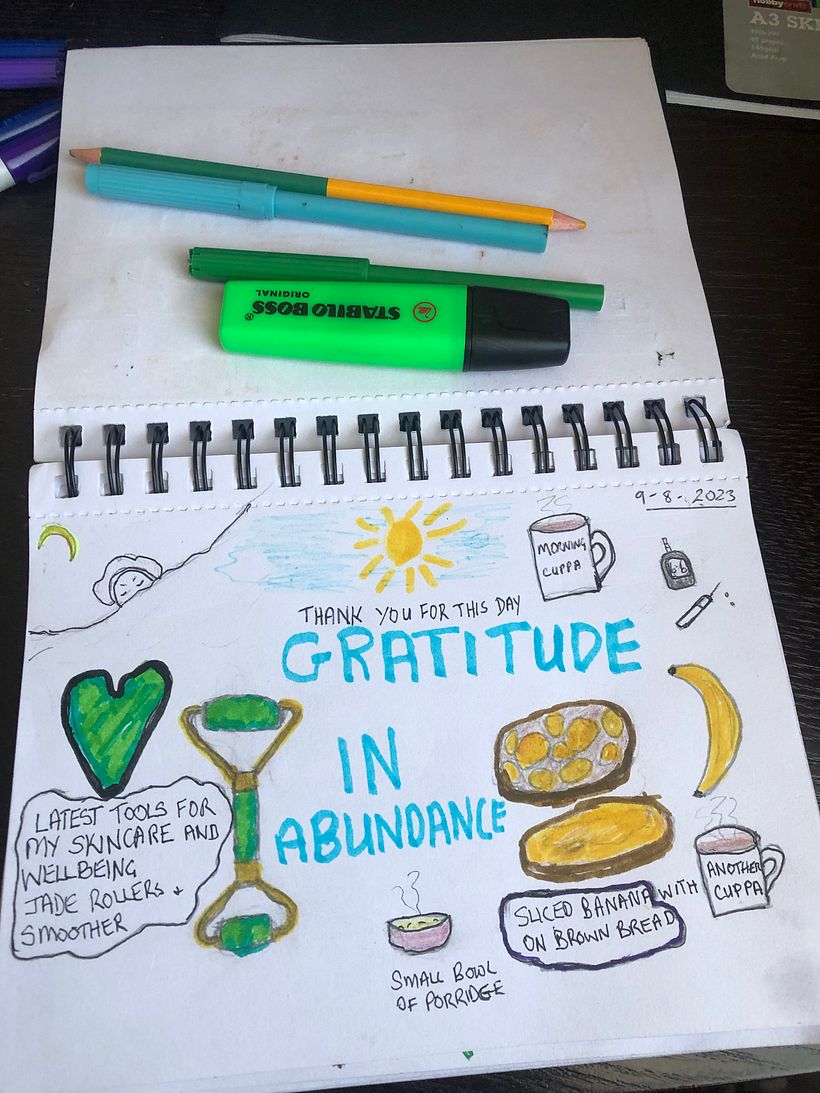 Hobbycraft
A3 SK
STABILO BOSS®
ORIGINAL
9-8-2023
MORNING
CUPPA
THANK YOU FOR THIS DAY
GRATITUDE
IN
ABUNDANCE
LATEST TOOLS FOR
MY SKINCARE AND
WELLBEING
JADE ROLLERS +
SMOOTHER
ANOTHER
CUPPA
SLICED BANANA WITH
ON BROWN BREAD
SMALL BOWL
OF PORRIDGE